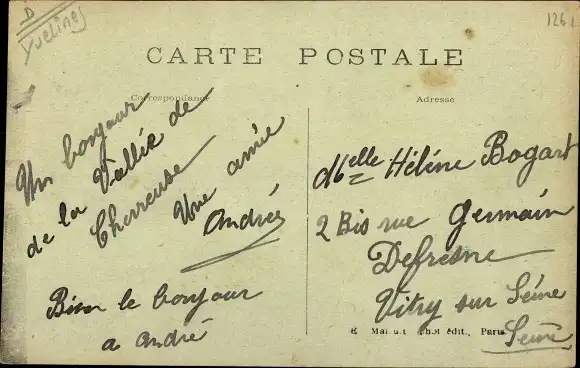 D
Yvelines
126
CARTE POSTALE
Correspondance
Adresse
Un bonjour
de la Vallée de
Chevreuse
Une amie
Andrée
Bien le bonjour
a André
Melle Hélène Bogart
2 Bis rue Germain
Defresne
Vitry sur Séine
Seine
phot édit., Paris